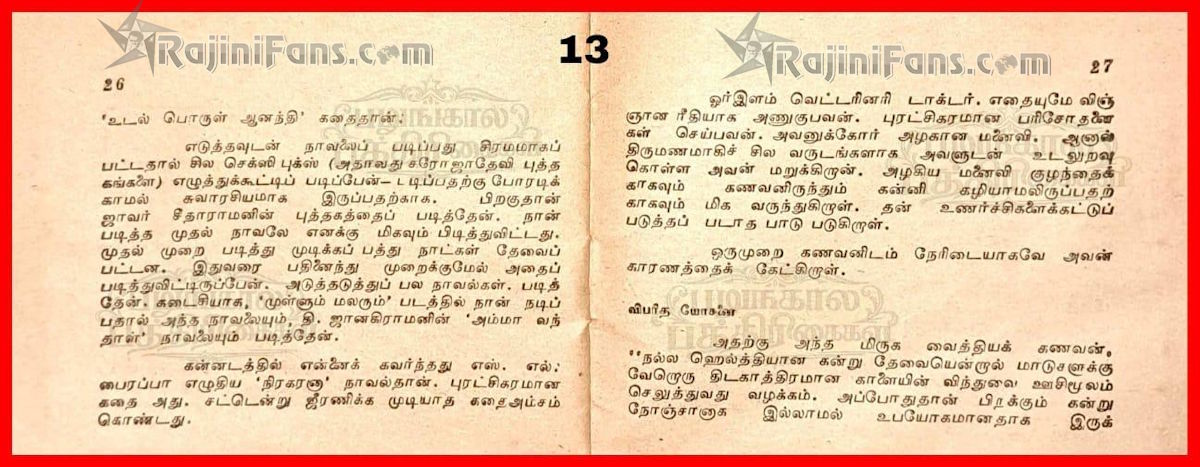 RajiniFans.com
13
RajiniFans.com
26
'உடல் பொருள் ஆனந்தி' கதைதான்.
எடுத்தவுடன் நாவலைப் படிப்பது சிரமமாகப்
பட்டதால் சில செக்ஸி புக்ஸ் (அதாவது சரோஜாதேவி புத்த
கங்களை) எழுத்துக்கூட்டிப் படிப்பேன்– படிப்பதற்கு போரடிக்
காமல் சுவாரசியமாக இருப்பதற்காக. பிறகுதான்
ஜாவர் சீதாராமனின் புத்தகத்தைப் படித்தேன். நான்
படித்த முதல் நாவலே எனக்கு மிகவும் பிடித்துவிட்டது.
முதல் முறை படித்து முடிக்கப் பத்து நாட்கள் தேவைப்
பட்டன. இதுவரை பதினைந்து முறைக்குமேல் அதைப்
படித்துவிட்டிருப்பேன். அடுத்தடுத்துப் பல நாவல்கள். படித்
தேன். கடைசியாக, 'முள்ளும் மலரும்' படத்தில் நான் நடிப்
பதால் அந்த நாவலையும், தி. ஜானகிராமனின் 'அம்மா வந்
தாள்' நாவலையும் படித்தேன்.
கன்னடத்தில் என்னைக் கவர்ந்தது எஸ். எல்.
பைரப்பா எழுதிய 'நிரகரனா' நாவல்தான். புரட்சிகரமான
கதை அது. சட்டென்று ஜீரணிக்க முடியாத கதைஅம்சம்
கொண்டது.
27
ஓர்இளம் வெட்டரினரி டாக்டர். எதையுமே விஞ்
ஞான ரீதியாக அணுகுபவன். புரட்சிகரமான பரிசோதனை
கள் செய்பவன். அவனுக்கோர் அழகான மனைவி. ஆனால்
திருமணமாகிச் சில வருடங்களாக அவளுடன் உடலுறவு
கொள்ள அவன் மறுக்கிறான். அழகிய மனைவி குழந்தைக்
காகவும் கணவனிருந்தும் கன்னி கழியாமலிருப்பதற்
காகவும் மிக வருந்துகிறாள். தன் உணர்ச்சிகளைக்கட்டுப்
படுத்தப் படாத பாடு படுகிறாள்.
ஒருமுறை கணவனிடம் நேரிடையாகவே அவன்
காரணத்தைக் கேட்கிறாள்.
விபரித யோசனை
அதற்கு அந்த மிருக வைத்தியக் கணவன்,
"நல்ல ஹெல்த்தியான கன்று தேவையென்றால் மாடுகளுக்கு
வேறொரு திடகாத்திரமான காளையின் விந்துவை ஊசிமூலம்
செலுத்துவது வழக்கம். அப்போதுதான் பிறக்கும் கன்று
நோஞ்சானாக இல்லாமல் உபயோகமானதாக இருக்